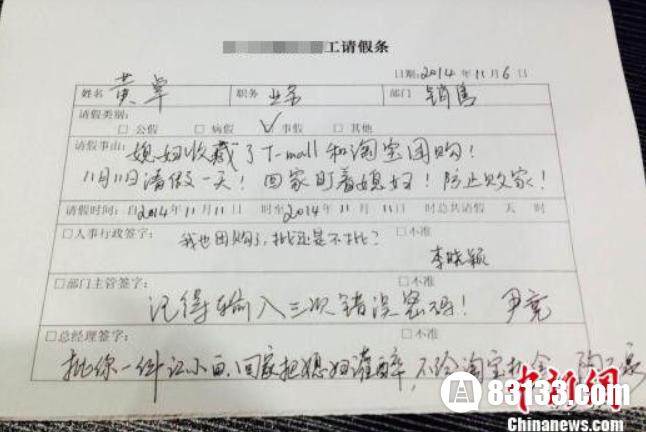 工请假条
日期:2014年11月6日
姓名 黄卓 职务 业务 部门 销售
请假类别:
□公假 □病假 ✓事假 □其他
请假事由: 媳妇收藏了T-mall和淘宝团购!
11月11日请假一天!回家盯着媳妇!防止败家!
请假时间:自2014年11月11日 时至2014年11月11日 时总共请假 天 时
□人事行政签字: □不准
我也团购了,批还是不批?
李晓颖
□部门主管签字: □不准
记得输入三次错误密码! 尹亮
□总经理签字: □不准
批你一件江小白,回家把媳妇灌醉,不给淘宝机会
中新网
83133.com
Chinanews.com